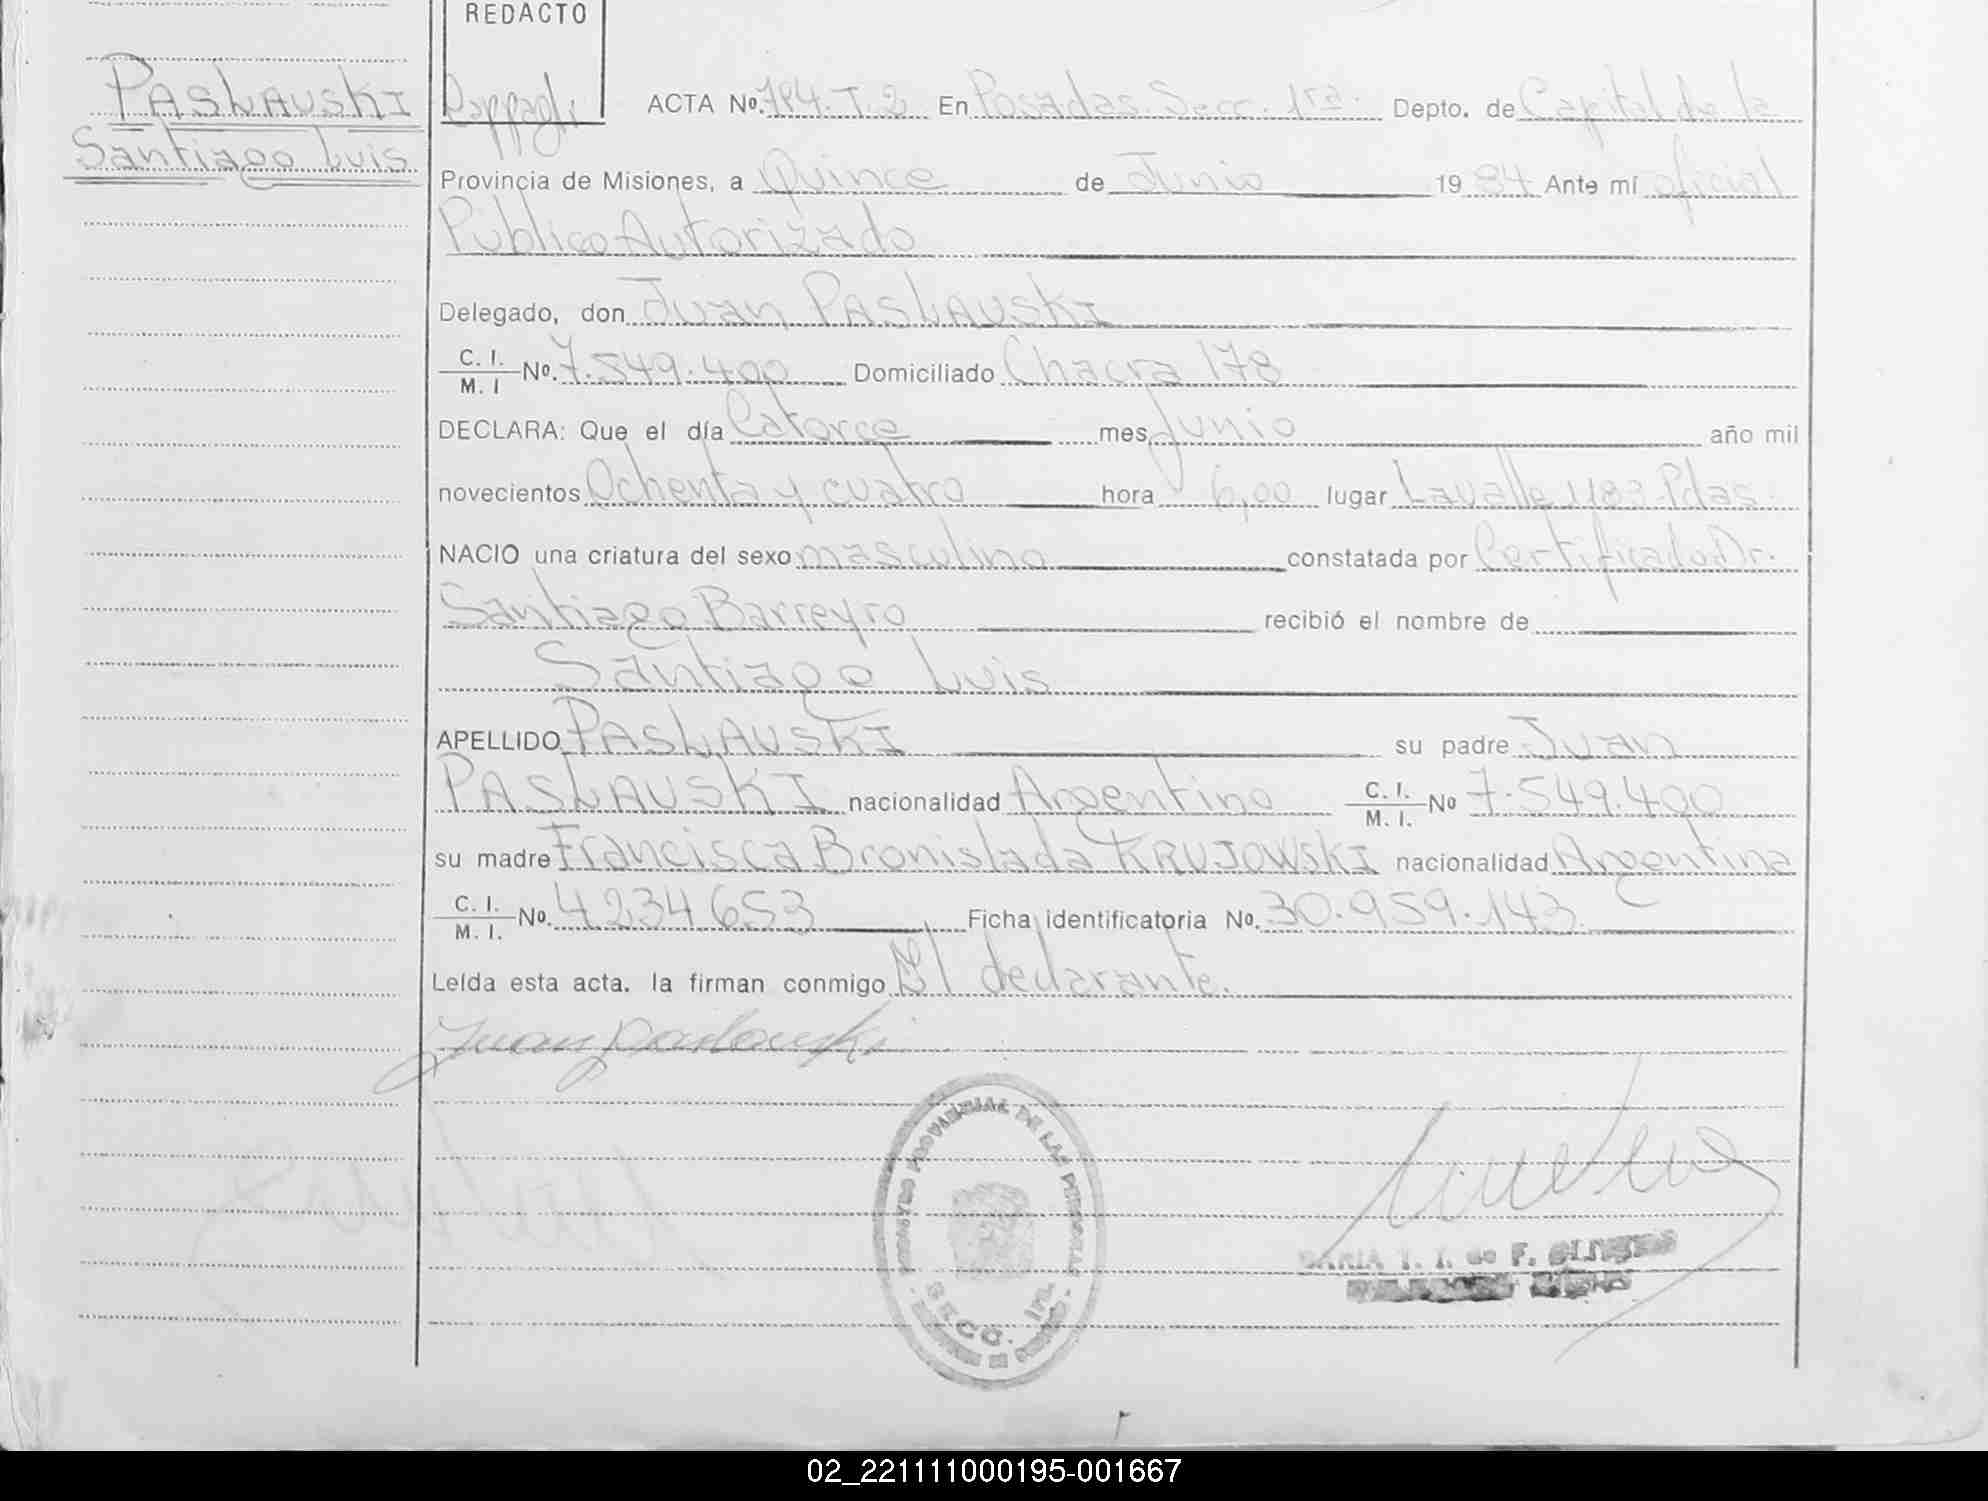 REDACTO
PASLAUSKI
Santiago Luis
ACTA Nº. 784. T. 2 En Posadas Secc. 1ra. Depto. de Capital de la
Provincia de Misiones, a Quince de Junio 1984 Ante mí oficial
Público Autorizado
Delegado, don Juan PASLAUSKI
C. I. / M. I Nº. 7.549.400 Domiciliado Chacra 178
DECLARA: Que el día Catorce mes Junio año mil
novecientos Ochenta y cuatro hora 6,00 lugar Lavalle 1183 Pdas.
NACIO una criatura del sexo masculino constatada por Certificado Dr.
Santiago Barreyro recibió el nombre de
Santiago Luis
APELLIDO PASLAUSKI su padre Juan
PASLAUSKI nacionalidad Argentino C. I. / M. I. Nº 7.549.400
su madre Francisca Bronislada KRUJOWSKI nacionalidad Argentina
C. I. / M. I. Nº. 4234653 Ficha identificatoria Nº. 30.959.143.
Leída esta acta. la firman conmigo El declarante.
Juan Paslauski
REGISTRO PROVINCIAL DE LAS PERSONAS
SECC. 1ra.
02_221111000195-001667